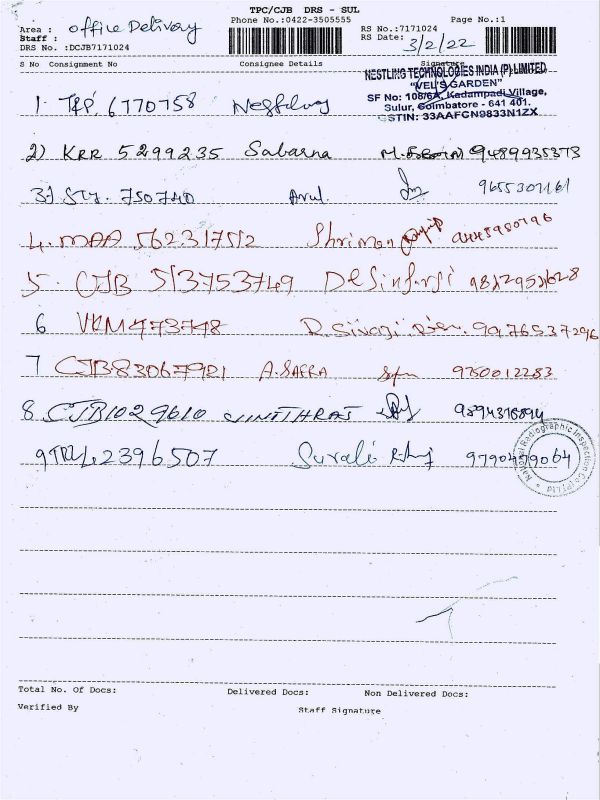 TPC/CJB DRS - SUL
Area : office Delivery Phone No.:0422-3505555 Page No.:1
Staff : RS No.:7171024
DRS No. :DCJB7171024 RS Date: 3/2/22
S No Consignment No Consignee Details Signature
NESTLING TECHNOLOGIES INDIA (P) LIMITED
"VEL'S GARDEN"
SF No: 108/6A, Kadampadi Village,
Sulur, Coimbatore - 641 401.
GSTIN: 33AAFCN9833N1ZX
1. 6770758
2) KRR 5299235 Sabarna 9489935373
3) 750740 Arul 9655301161
4. MAA 56231752
5. CJB 513753749
6 VKM473748 9976537296
7 CJB83067921 A.SAFRA 9750012283
8 CJB1029610 VINITHRAJ 9894316894
9 2396507 Surali 9790479064
National Radiographic Inspection Co (P) Ltd
Total No. Of Docs: Delivered Docs: Non Delivered Docs:
Verified By Staff Signature